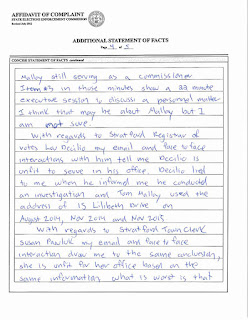 AFFIDAVIT OF COMPLAINT
STATE ELECTIONS ENFORCEMENT COMMISSION
ADDITIONAL STATEMENT OF FACTS
Page 4 of 5
CONCISE STATEMENT OF FACTS continued
Malloy still serving as a commissioner
Item #3 in those minutes show a 33 minute
executive session to discuss a personnel matter
I think that may be about Malloy but I
am not sure.
With regards to Stratford Registrar of
votes Lou Decilio my email and face to face
interactions with him tell me Decilio is
unfit to serve in his office. Decilio lied
to me when he informed me he conducted
an investigation and Tom Malloy used the
address of 15 Lilibeth Drive on
August 2014, Nov 2014 and Nov 2015
With regards to Stratford Town Clerk
Susan Pawluk my email and face to face
interaction draw me to the same conclusion,
she is unfit for her office based on the
same information, what is worst is that